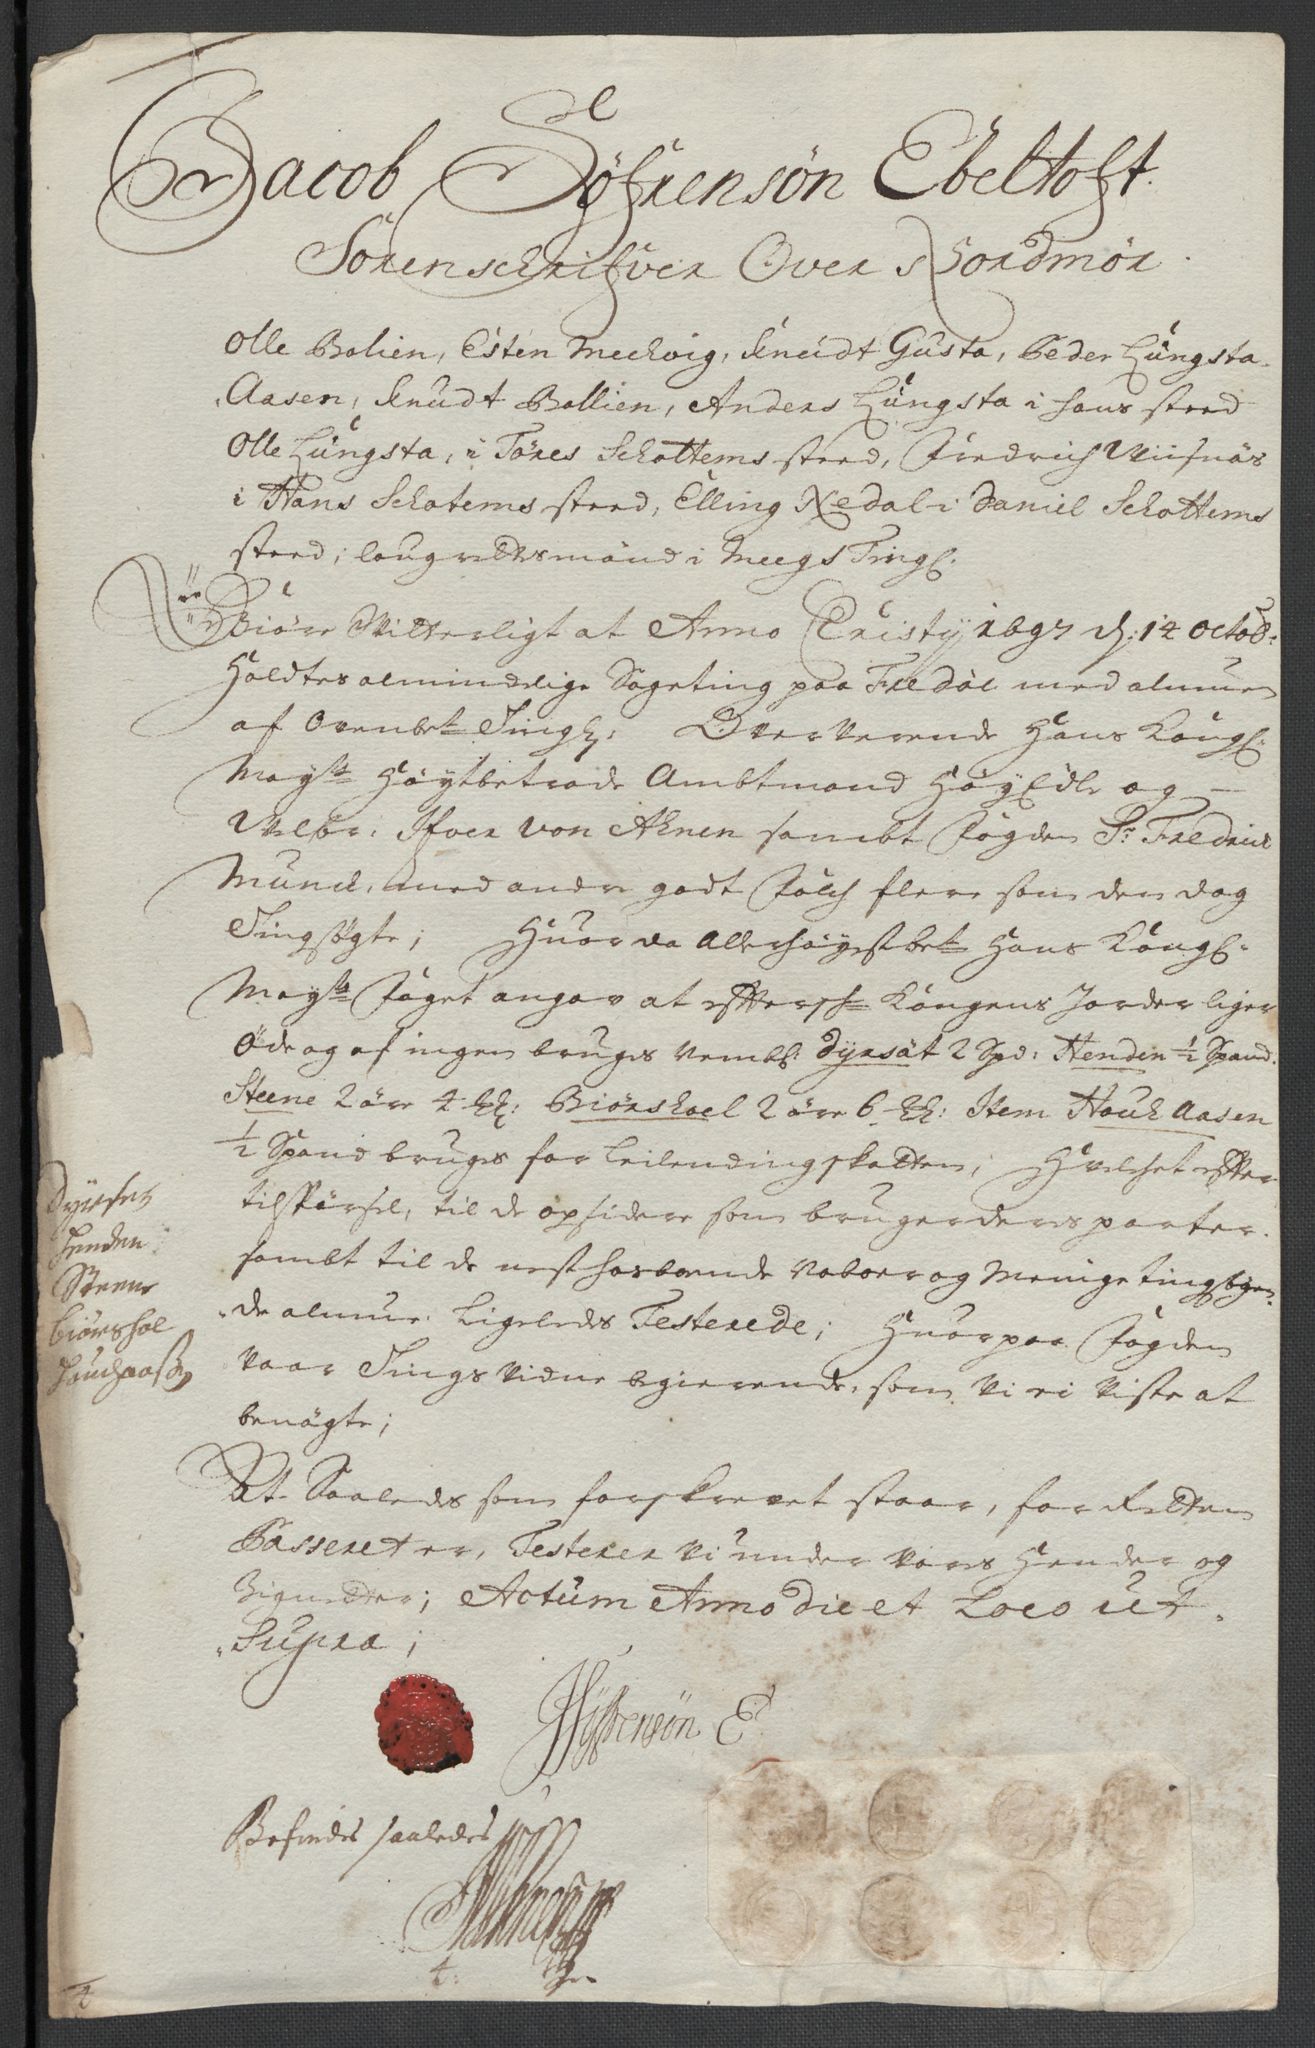 Jacob Söfrensön Ebeltoft.
Sorenschrifver Over Nordmör.
Olle Bolien, Esten Meckvig, Knudt Gusta, Peder Lüngsta
Aasen, Knudt Bollien, Anders Lüngsta i hans sted
Olle Lüngsta, i Töres Schottems sted, Fredrich Viisnäs
i Hans Schotems sted, Elling Nedal i Daniel Schottems
sted; laugrettesmänd i Meegs Tingl:
Giöre Vitterligt at Anno Christy 1697 d: 14 octob:
Holdtes almindelige Sageting paa Fredöe med almuen
af Ovenbete Tingl: Oververende Hans Kongl:
Mayts Höytbetrode Ambtmand Höyedle og
Velbr: Ifver von Ahnen sambt fogden Sr Fredric
Munck, med andre godt folck flere som den dag
Tingsögte; Huor da Allerhöyestbete Hans Kongl:
Mayts foget angav at effterschr Kongens Jorder liger
Öde og af ingen bruges Nembl: Dyrsät 2 Spd: Henden ½ Spand
Steene 2 öre 4 : Biörskoel 2 öre 6 : Item Houk Aasen
½ Spand bruges for Leilendingskatten; Hvilchet effter
tilspörsel, til de opsidere som bruger deres parter
sambt til de nest hosboende Naboer og Menige tingsögen
de almue Ligeledes Testerede; Huorpaa fogden
vaar Tings vidne begierende, som vi ei viste at
benögte;
At Saaledes som forskrevet staar, for Retten
Passeret er, Testerer vi under vores Hender og
Signetter; Actum Anno die et Loco ut
Supra;
Dyrset
Henden
Steene
Biörskol
Houchaasen
JSöfrensön E
Befindes saaledes